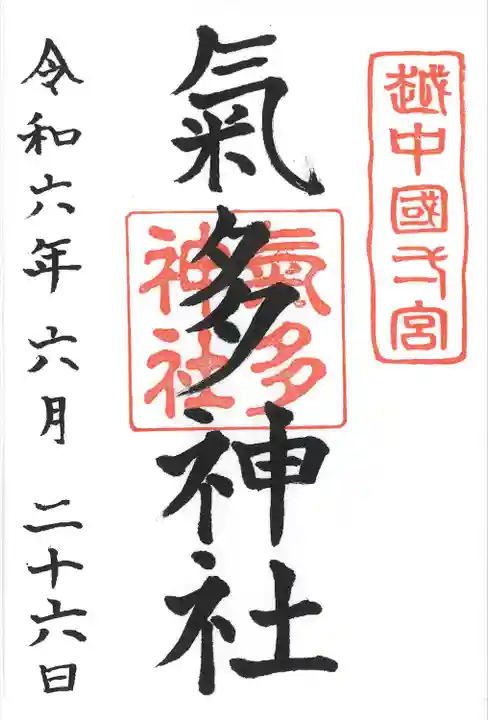 越中國弌宮
氣多神社
氣多
神社
令和六年六月二十六日